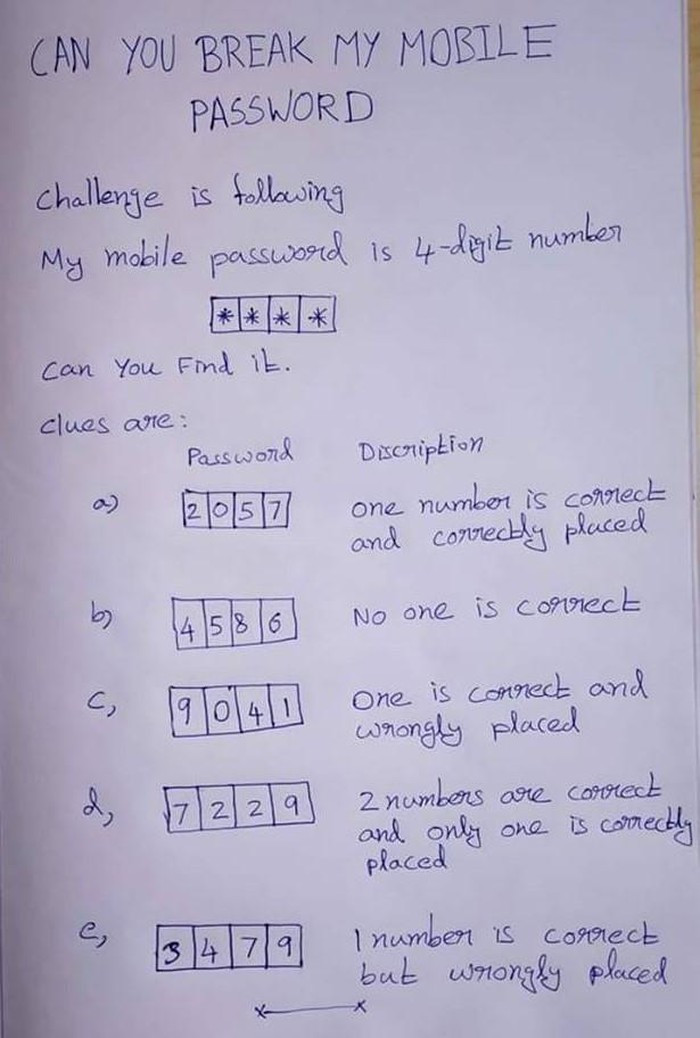 CAN YOU BREAK MY MOBILE
PASSWORD
Challenge is following
My mobile password is 4-digit number
* * * *
Can You Find it.
Clues are:
Password Discription
a) 2 0 5 7 one number is correct
and correctly placed
b) 4 5 8 6 No one is correct
c, 9 0 4 1 One is correct and
wrongly placed
d, 7 2 2 9 2 numbers are correct
and only one is correctly
placed
e, 3 4 7 9 1 number is correct
but wrongly placed
x x